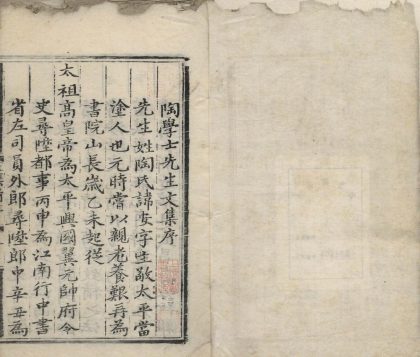 陶學士先生文集序
先生姓陶氏諱安字主敬太平當
塗人也元時嘗以親老養艱再為
書院山長歲乙未起從
太祖髙皇帝為太平興國翼元帥府令
史尋陞都事丙申為江南行中書
省左司員外郎尋陞郎中辛丑為